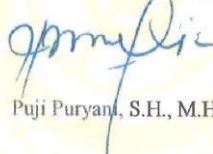 Puji Puryani, S.H., M.H